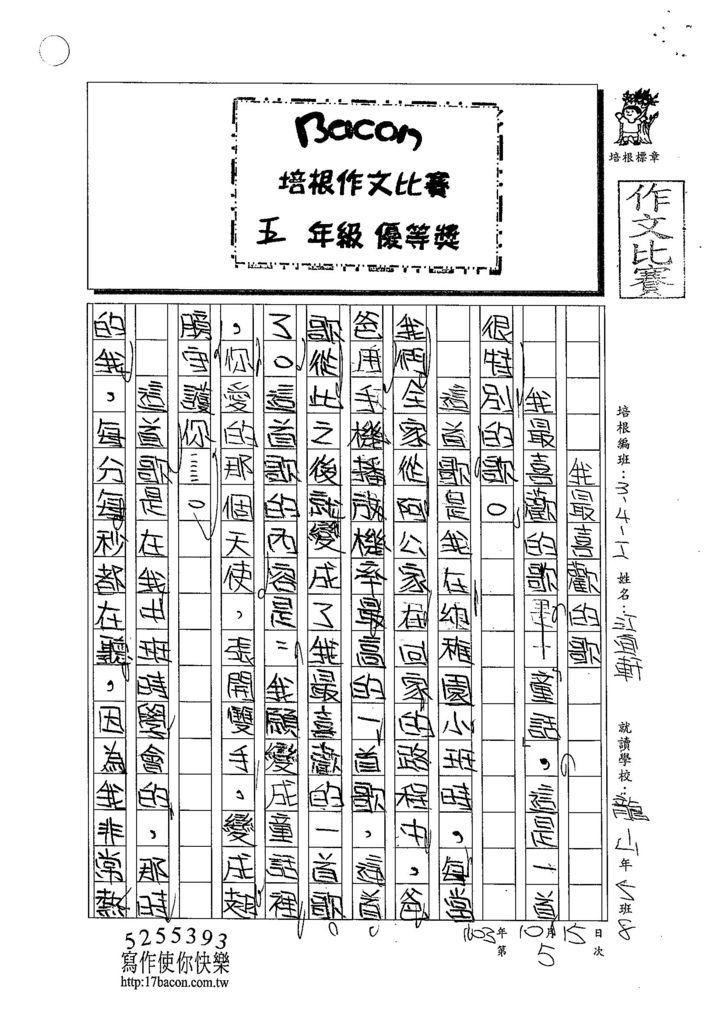 Bacon
培根作文比賽
五 年級 優等獎
培根標章
作文比賽
培根編班：3-4-1 姓名：江宜軒 就讀學校：龍山 年 5 班 8
103年10月15日
第5次
我最喜歡的歌
我最喜歡的歌是—童話，這是一首
很特別的歌。
這首歌是我在幼稚園小班時，每當
我們全家從阿公家在回家的路程中，爸
爸用手機播放機率最高的一首歌，這首
歌從此之後就變成了我最喜歡的一首歌
了。這首歌的內容是：我願變成童話裡
，你愛的那個天使，張開雙手，變成翅
膀守護你……。
這首歌是在我中班時學會的，那時
的我，每分每秒都在聽，因為我非常熱
5255393
寫作使你快樂
http:17bacon.com.tw